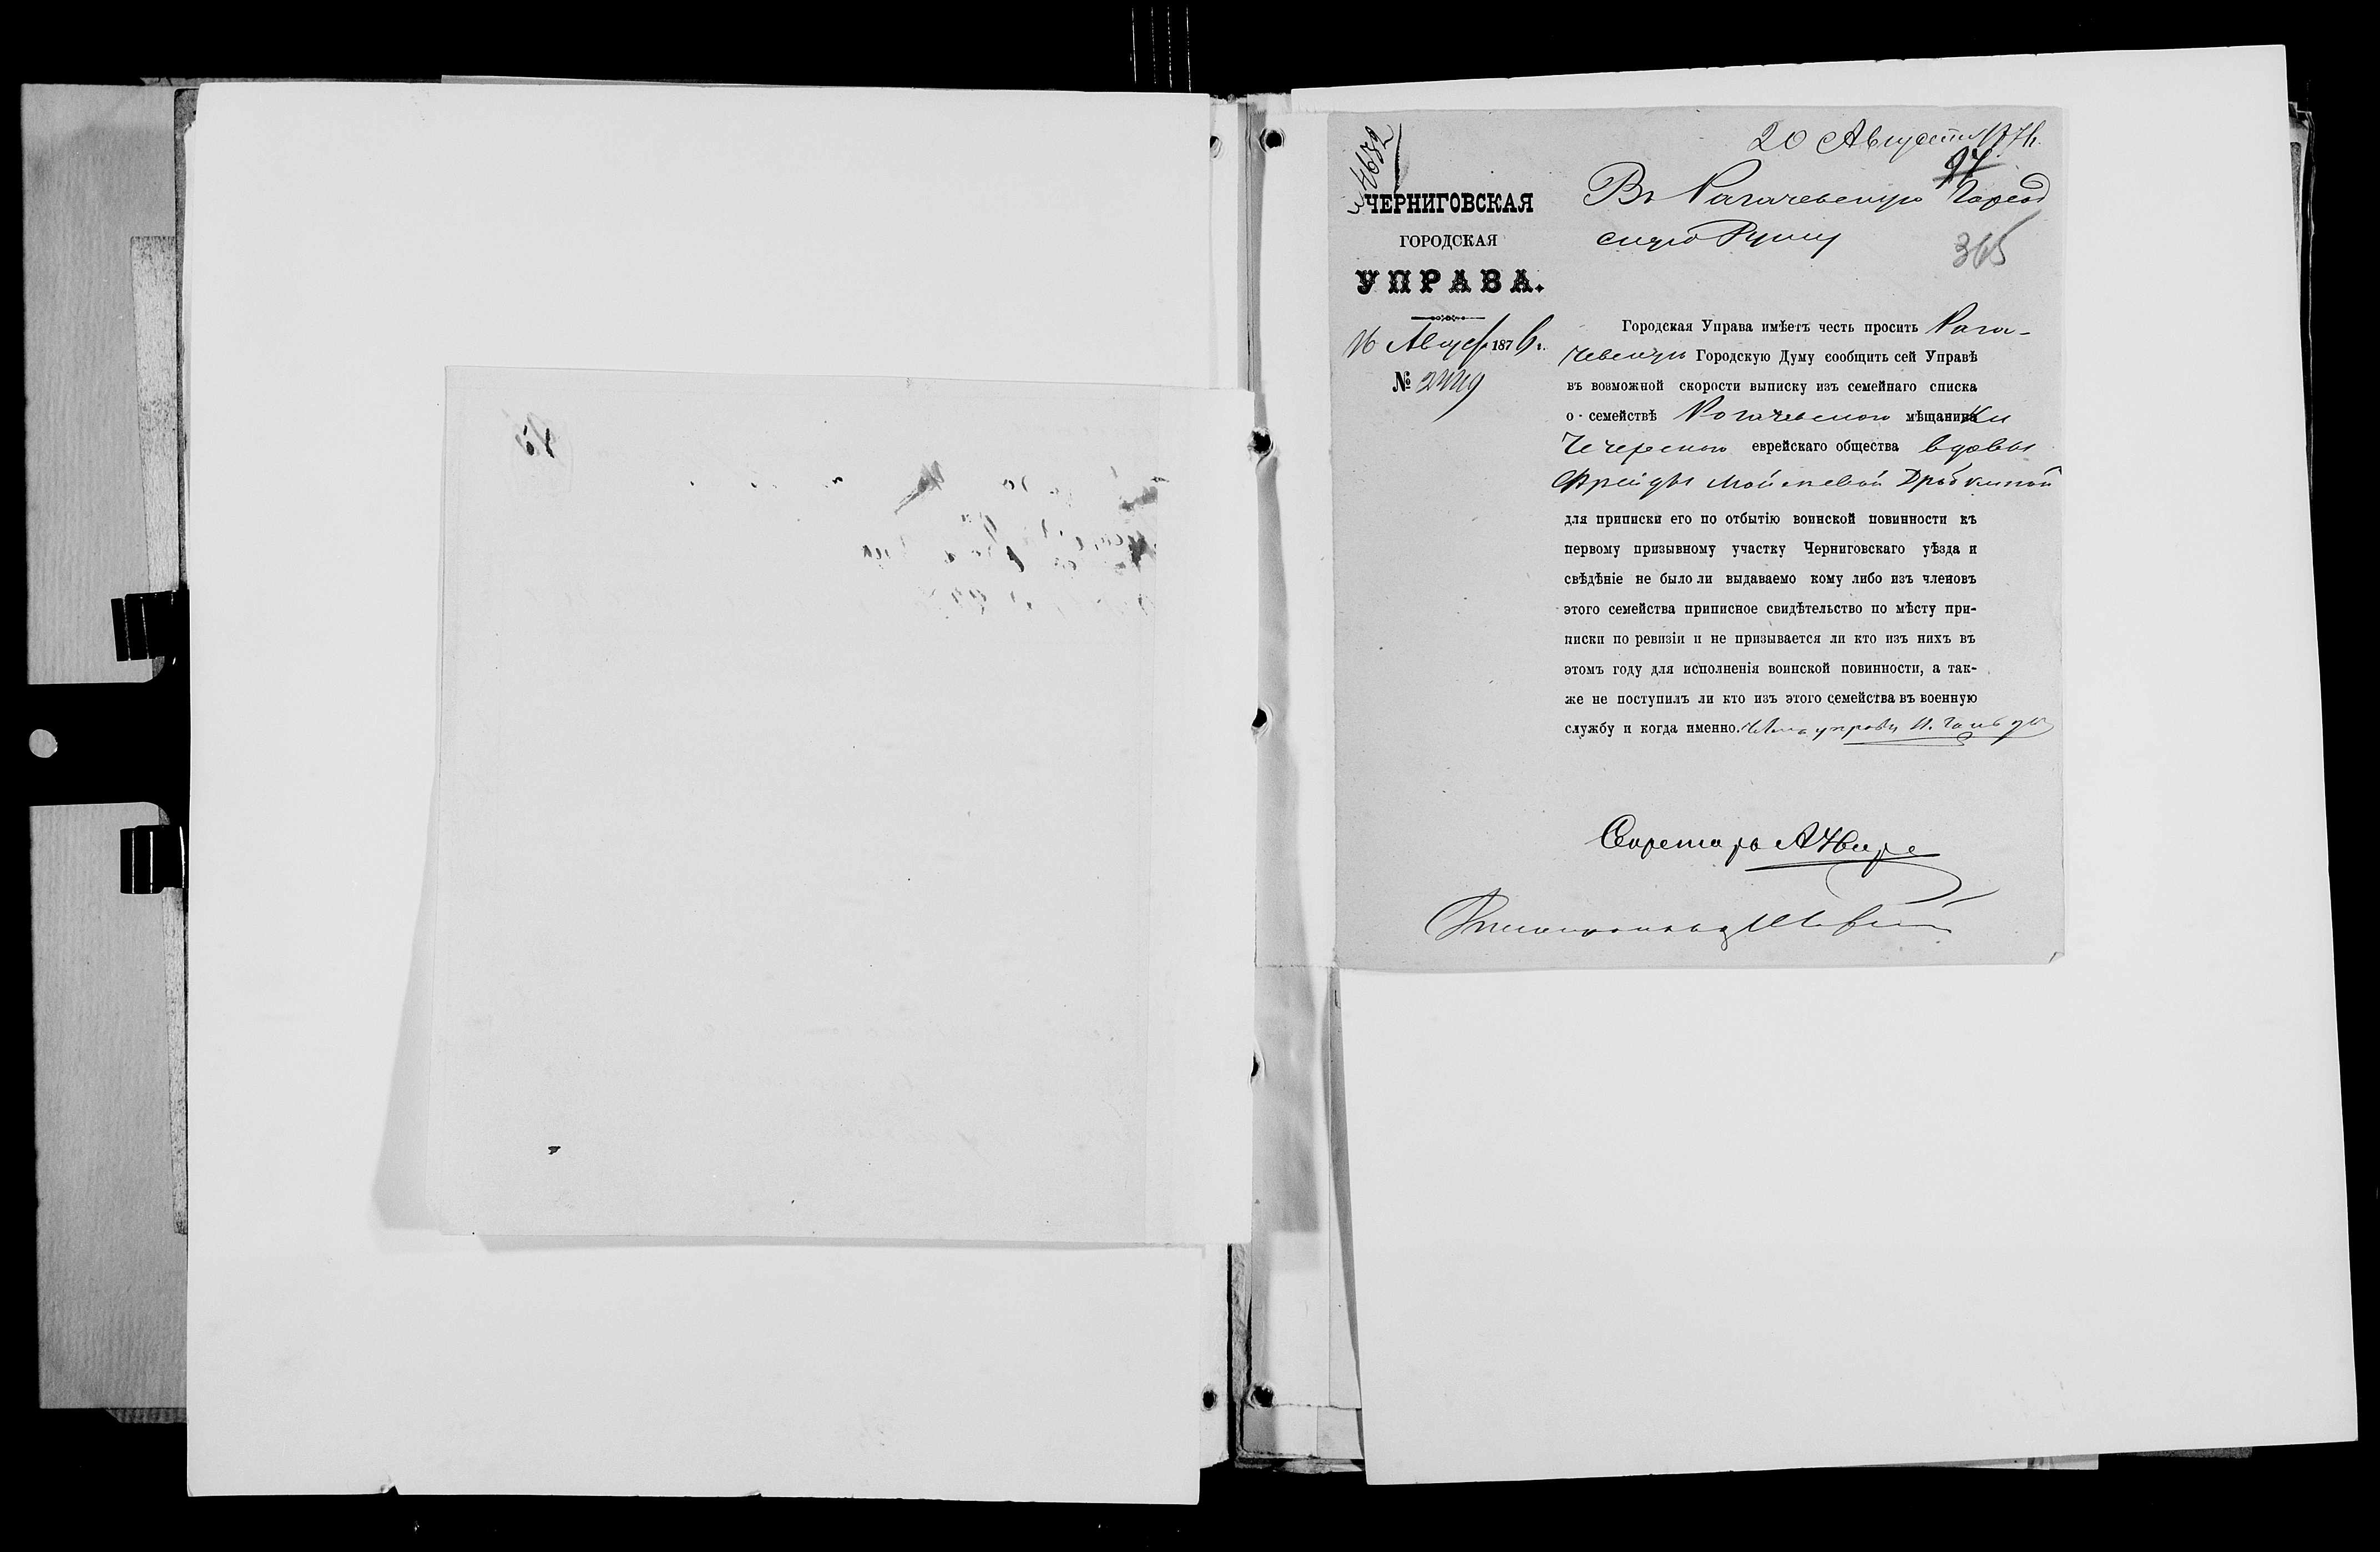 20 Августа 1876.
4682
94
365
ЧЕРНИГОВСКАЯ
ГОРОДСКАЯ
УПРАВА.
16 Август 1876 г.
№ 2449
Въ Рогачевскую Город
скую Думу
Городская Управа имѣетъ честь просить Рога-
чевскую Городскую Думу сообщить сей Управѣ
въ возможной скорости выписку изъ семейнаго списка
о семействѣ Рогачевского мѣщанинки
Чечерского еврейскаго общества вдовы
Фрейды Мойсеевой Драбкиной
для приписки его по отбытію воинской повинности къ
первому призывному участку Черниговскаго уѣзда и
свѣдѣніе не было ли выдаваемо кому либо изъ членовъ
этого семейства приписное свидѣтельство по мѣсту при-
писки по ревизіи и не призывается ли кто изъ нихъ въ
этомъ году для исполненія воинской повинности, а так-
же не поступилъ ли кто изъ этого семейства въ военную
службу и когда именно. Членъ управы
Секретарь